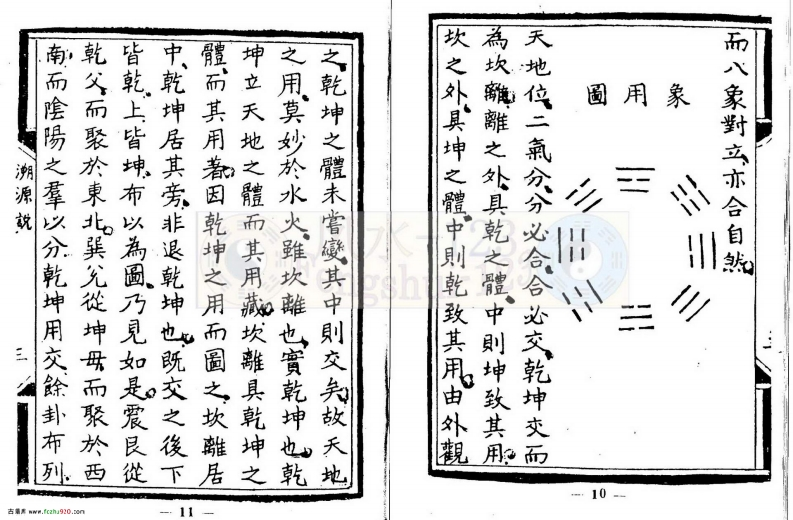 而八象對立亦合自然
象用圖
天地位二氣分分必合合必交乾坤交而
為坎離離之外具乾之體中則坤致其用
坎之外具坤之體中則乾致其用由外觀
三
— 10 —
之乾坤之體未嘗變其中則交矣故天地
之用莫妙於水火雖坎離也實乾坤也乾
坤立天地之體而其用藏坎離具乾坤之
體而其用著因乾坤之用而圖之坎離居
中乾坤居其旁非退乾坤也既交之後下
皆乾上皆坤布以為圖乃見如是震艮從
乾父而聚於東北巽兌從坤母而聚於西
南而陰陽之羣以分乾坤用交餘卦布列
溯源說
三
— 11 —
风水-123
fengshui-123
古易井 www.fczhu920.com